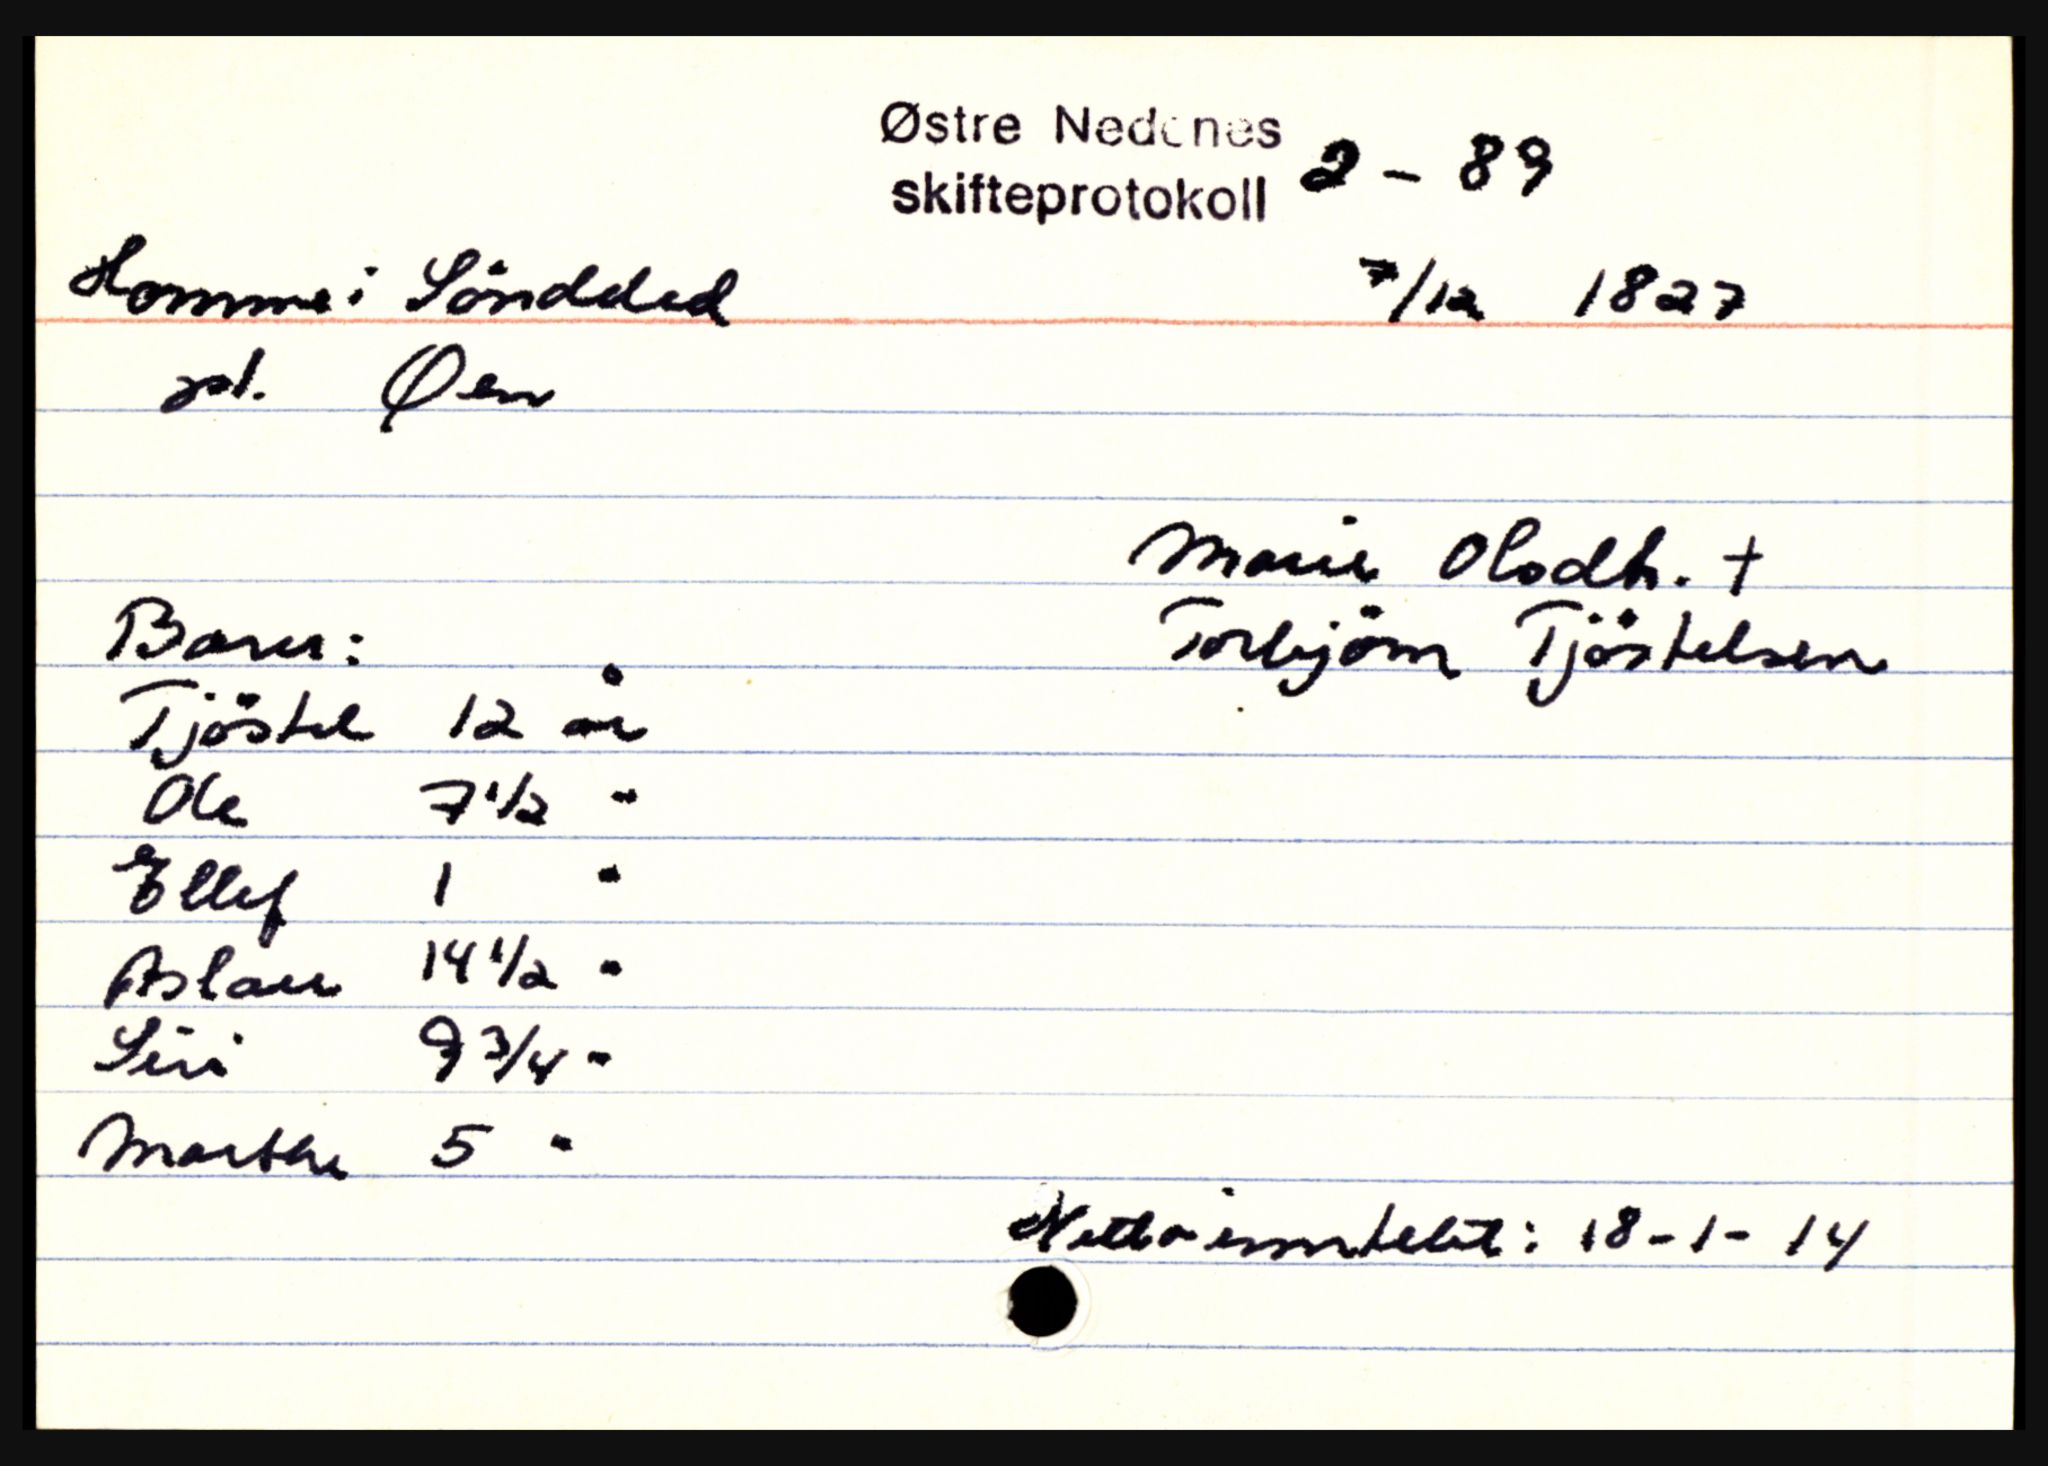 Østre Nedenes
skifteprotokoll 2 - 89
Homme i Sönddeled 7/12 1827
pl. Øen
Marie Olsdtr. +
Torbjörn Tjöstelsen
Barn:
Tjöstel 12 år
Ole 7 1/2 "
Ellef 1 "
Aslaue 14 1/2 "
Siri 9 3/4 "
Marthe 5 "
Netto inntekt: 18 - 1 - 14